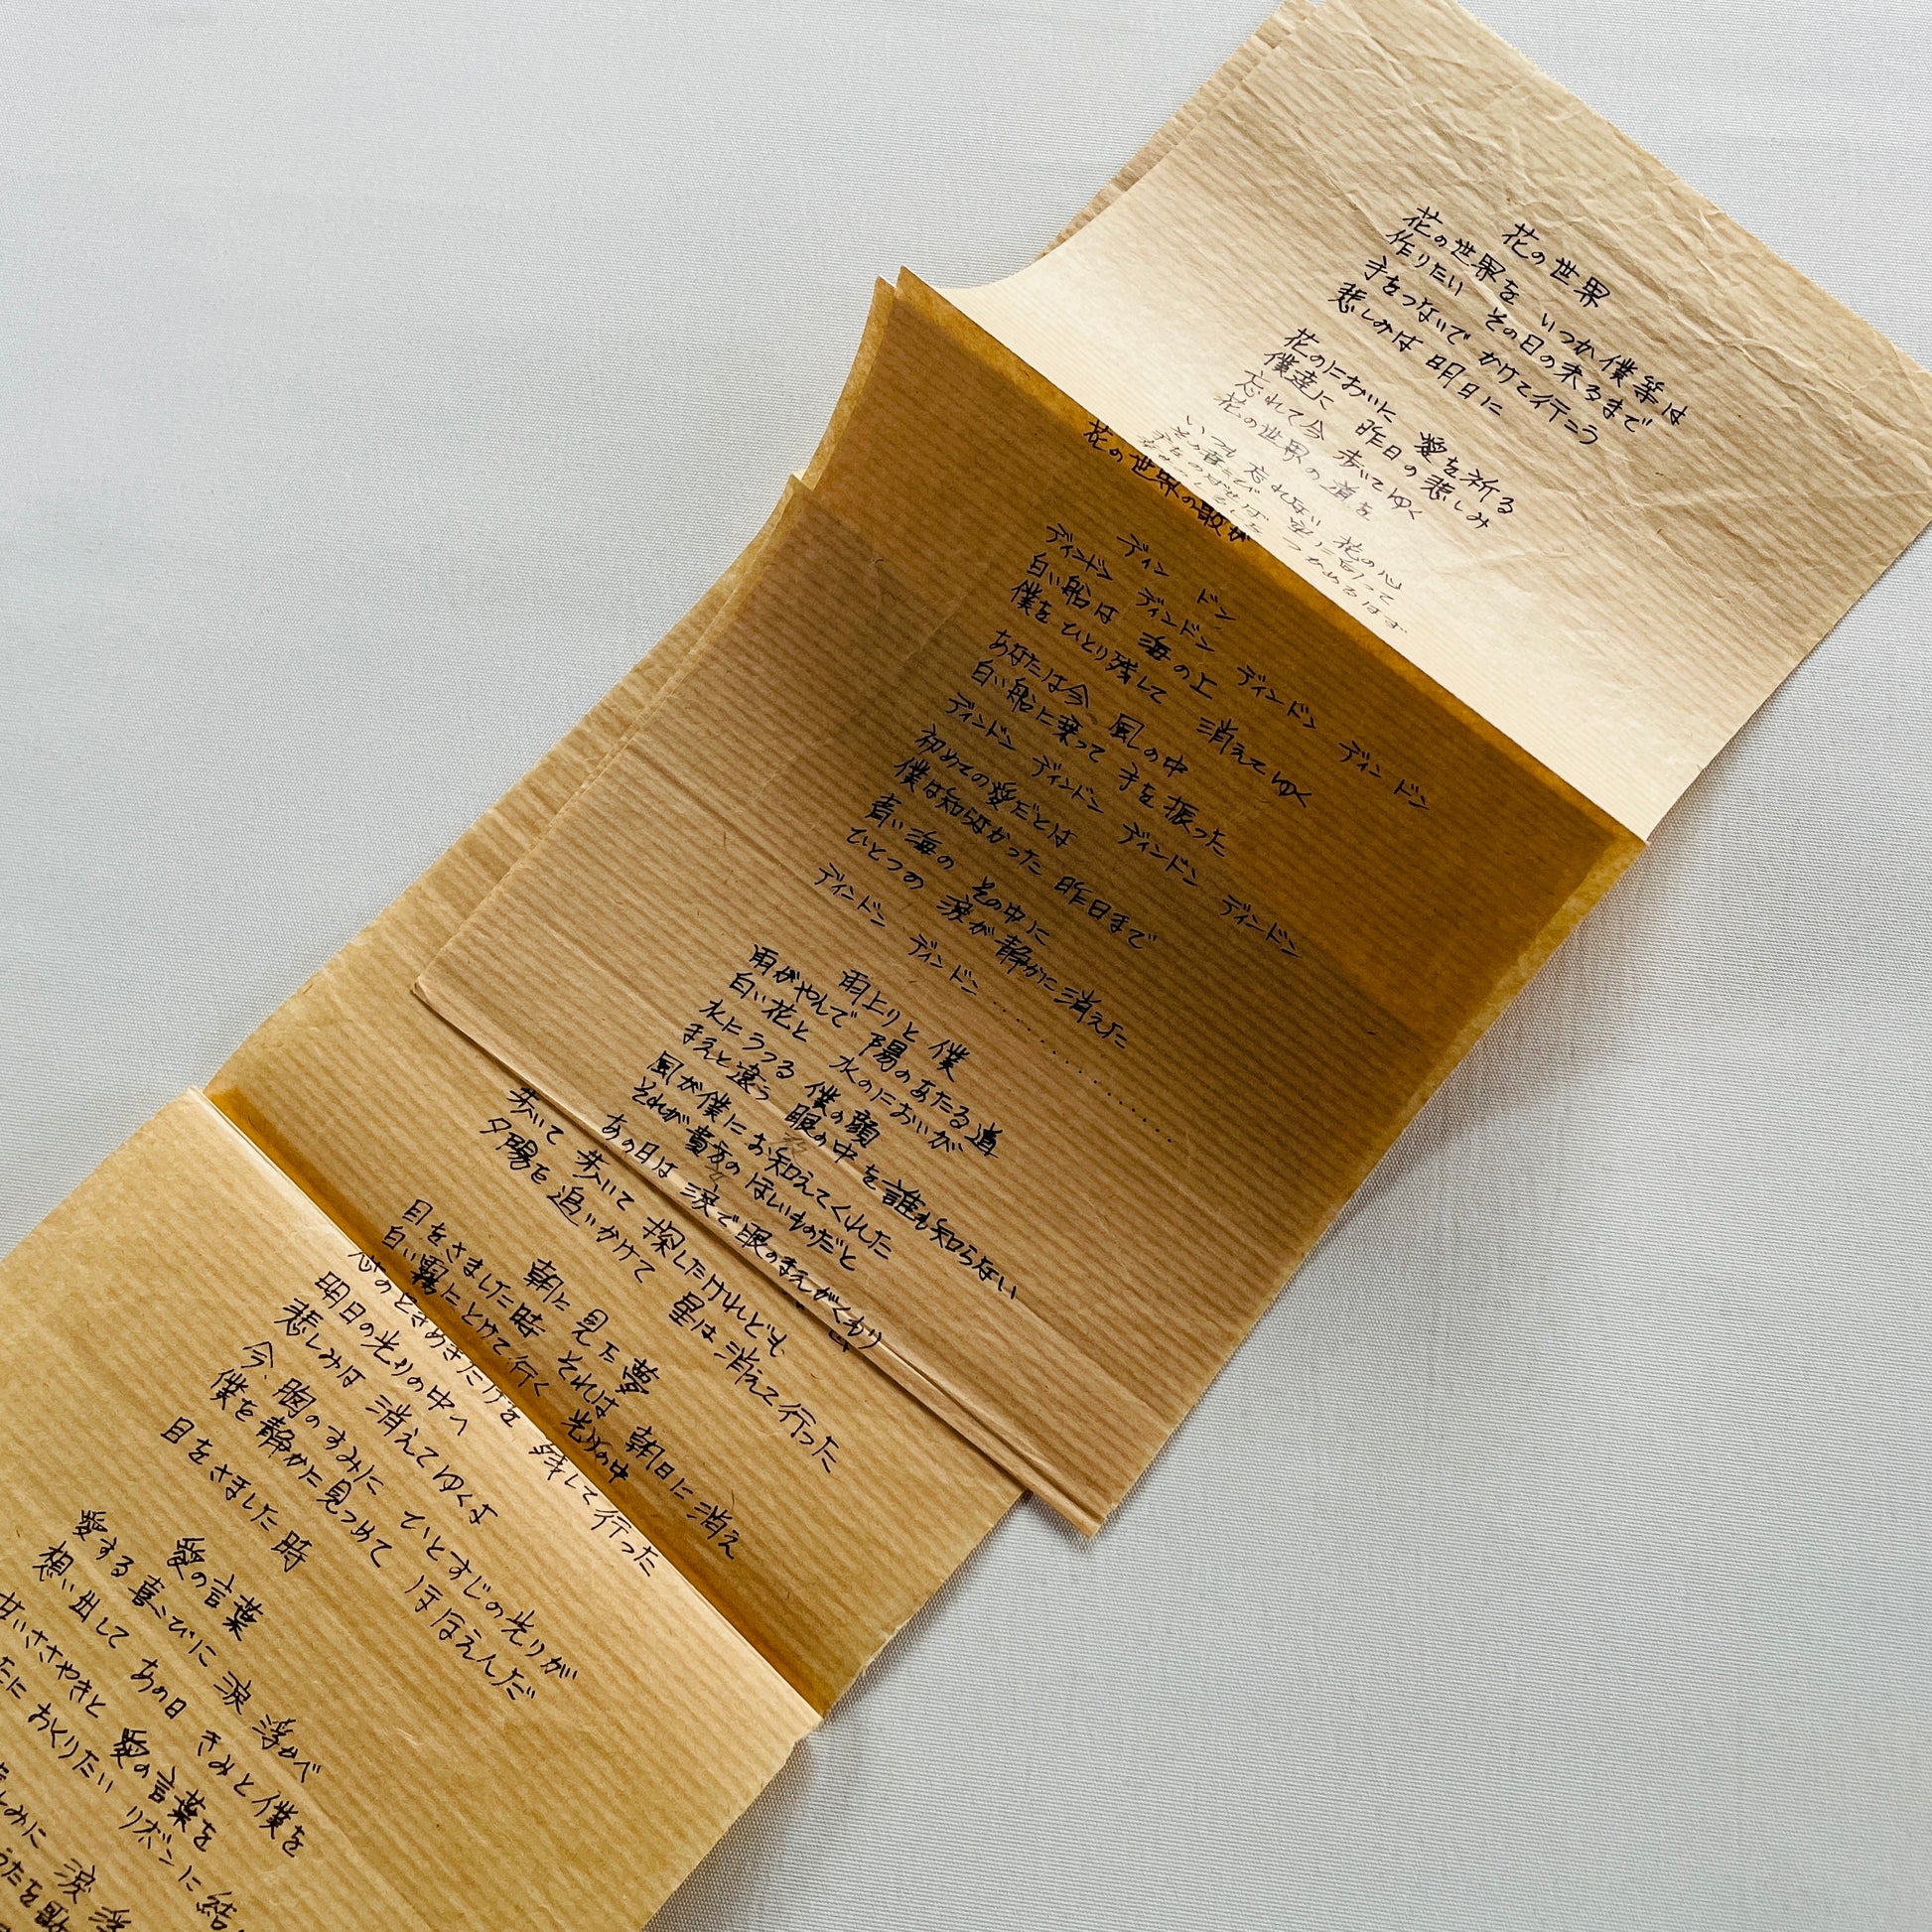 花の世界
花の世界を いつか僕等は
作りたい その日の来るまで
手をつないで かけて行こう
悲しみは 明日に
花のにおいに 愛を祈る
僕達に 昨日の悲しみ
忘れて今 歩いてゆく
花の世界の道を
いつも 忘れない 花の心
花の世界の歌が
ディン ドン
ディンドン ディンドン ディンドン ディンドン
白い船は 海の上
僕をひとり残して 消えてゆく
あなたは今 風の中
白い船に乗って 手を振った
ディンドン ディンドン ディンドン ディンドン
初めての愛だとは
僕は知らなかった 昨日まで
青い海の その中に
ひとつの 涙が静かに消えた
ディンドン ディンドン…………
雨上りと僕
雨がやんで 陽のあたる道
白い花と 水のにおいが
水にうつる 僕の顔
まえと違う 眼の中を誰も知らない
風が僕にお知えてくれた
それが貴方のほしいものだと
あの日は 涙で眼のまえがくもり
歩いて 歩いて 探したけれども
夕陽を追いかけて 星は消えて行った
朝に見た夢
目をさました時 それは 朝日に消え
白い霧にとけて行く 光りの中
恋のときめきだけを 残して行った
明日の光りの中へ
悲しみは 消えてゆくよ
今、胸のすみに ひとすじの光りが
僕を静かに見つめて ほほえんだ
目をさました時
愛の言葉
愛する喜こびに 涙 浮かべ
想い出して あの日 きみと僕を
甘いささやきと 愛の言葉を
におくりたい リボンに結
しみに 涙 浮
うたを歌